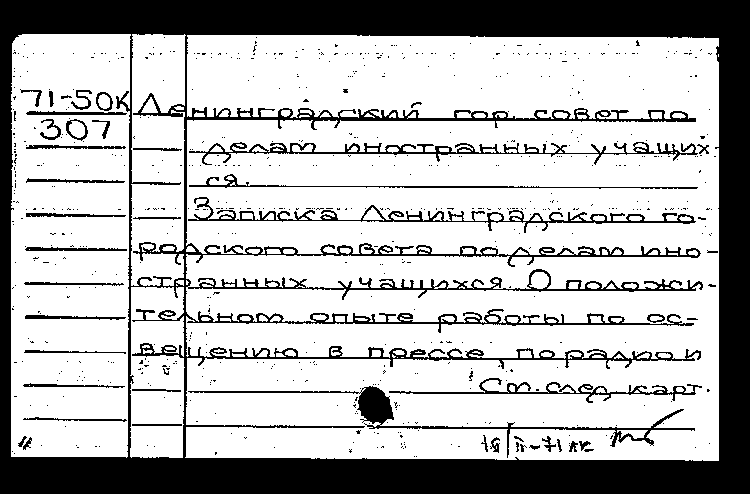 71-50К Ленинградский гор. совет по
307
делам иностранных учащих-
ся.
Записка Ленинградского го-
родского совета по делам ино-
странных учащихся. О положи-
тельном опыте работы по ос-
вещению в прессе, по радио и
См. след. карт.